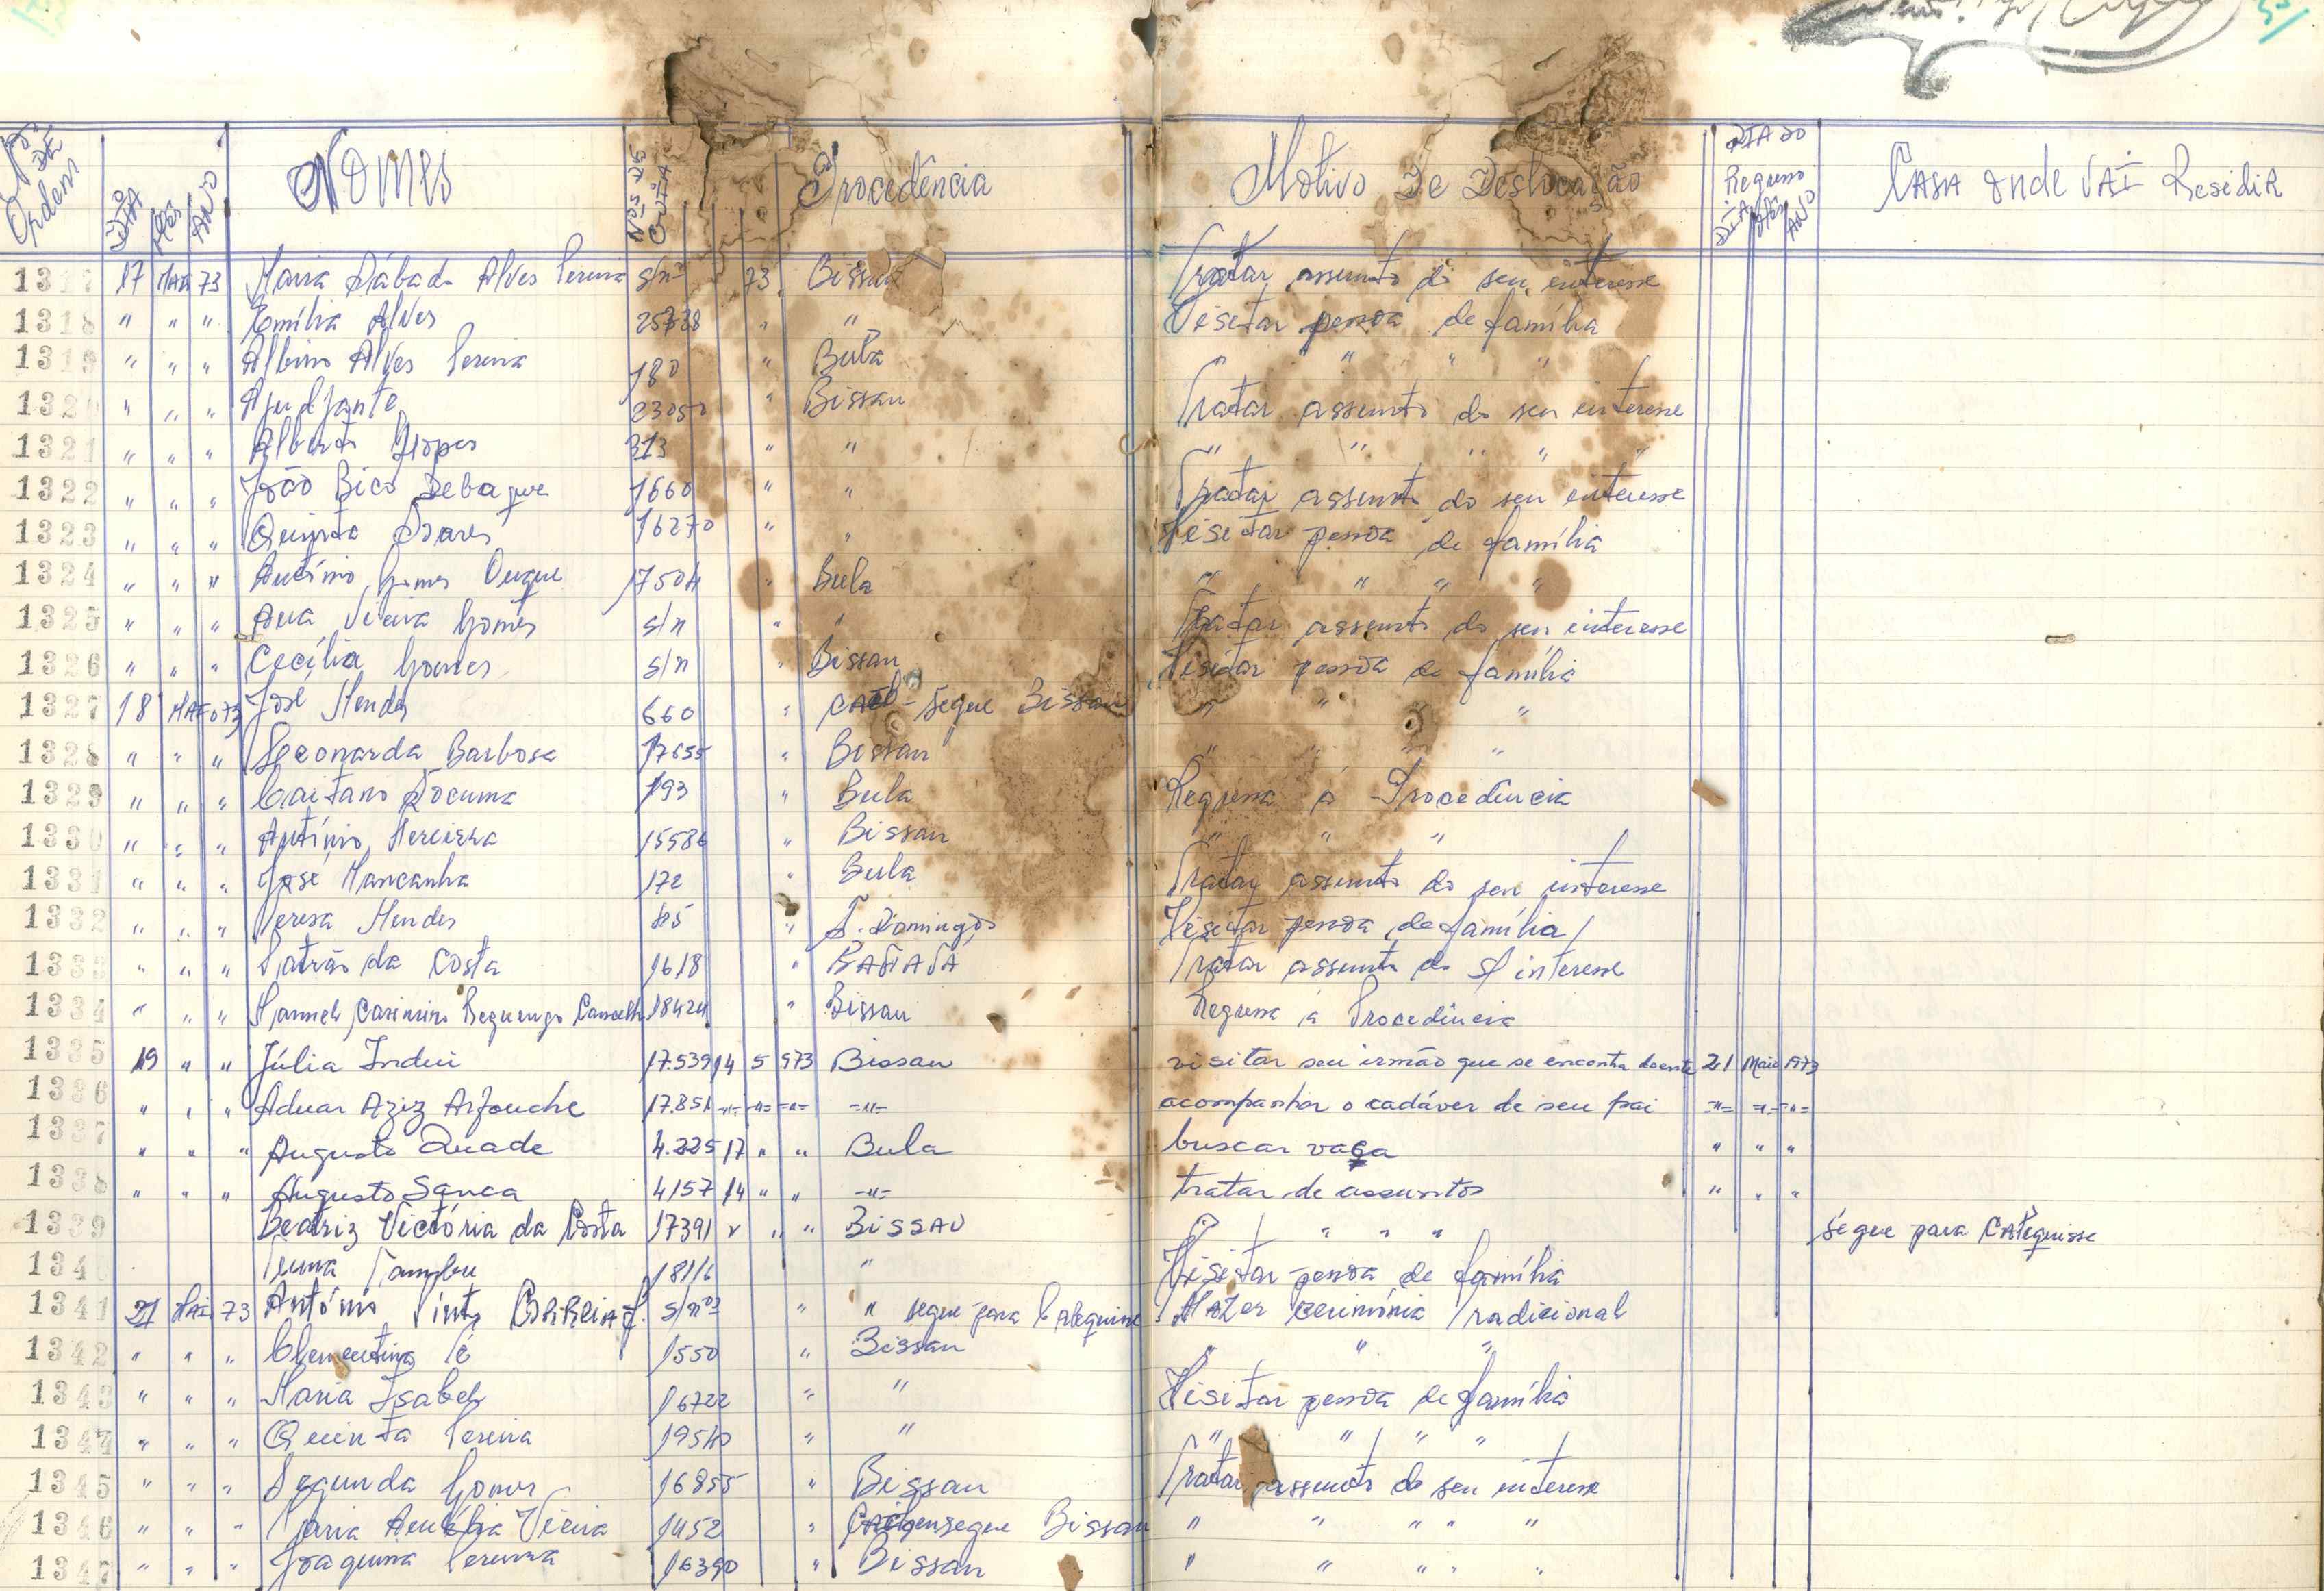 Nº DE Ordem DIA MÊS ANO Nomes Nºs DE GUIA Procedência Motivo De Deslocação DIA DO Regresso DIA MÊS ANO CASA onde VAI Residir
1317 17 MAI 73 Maria Sábado Alves Pereira s/nº 73 Bissau Tratar assunto do seu interesse
1318 " " " Emília Alves 25738 " " Visitar pessoa de família
1319 " " " Albino Alves Pereira 180 " Bula " " " "
1320 " " " 23050 " Bissau Tratar assunto do seu interesse
1321 " " " Alberto Lopes 313 " " " " " " "
1322 " " " João Bico Debaque 1660 " " Tratar assunto do seu interesse
1323 " " " Quinta Soares 16270 " " Visitar pessoa de família
1324 " " " António Gomes 17504 " Bula " " " "
1325 " " " Ana Vieira Gomes s/n " " Tratar assunto do seu interesse
1326 " " " Cecília Gomes s/n " Bissau Visitar pessoa de família
1327 18 MAIO 73 José Mendes 660 " segue Bissau " " " "
1328 " " " Leonarda Barbosa 17655 " Bissau " " " "
1329 " " " Caitano Documa 193 " Bula Regressa á Procedência
1330 " " " António Pereira 15586 " Bissau " " "
1331 " " " José Mancanha 172 " Bula Tratar assunto do seu interesse
1332 " " " Teresa Mendes 85 " S. Domingos Visitar pessoa de família /
1333 " " " Patrão da Costa 1618 " Tratar assunto do s/ interesse
1334 " " " Manuel Casimiro Reguengo 18424 " Bissau Regressa á Procedência
1335 19 " " Júlia Indui 17.539 14 5 973 Bissau visitar seu irmão que se encontra doente 21 Maio 1973
1336 " " " Aduar Aziz Arfouche 17.851 -"- -"- -"- -"- acompanhar o cadáver de seu pai -"- -"- -"-
1337 " " " Augusto Quade 4.225 17 " " Bula buscar vaca " " "
1338 " " " Augusto Sanca 4157 14 " " -"- tratar de assuntos " " "
1339 Beatriz Victória da Costa 17391 " " " BISSAU " " " segue para CAtequisse
1340 18116 " Visitar pessoa de família
1341 21 MAI 73 António Pinto CORREIA s/nº " " segue para Catequisse FAZer cerimónia Tradicional
1342 " " " Clementina Có 1550 " Bissau " " "
1343 " " " Maria Isabel 16722 " " Visitar pessoa de família
1344 " " " Quinta Pereira 19540 " " " " " "
1345 " " " Segunda Gomes 16855 " Bissau Tratar assunto do seu interesse
1346 " " " Maria Amélia Vieira 1452 " segue Bissau " " " " "
1347 " " " Joaquina Pereira 16390 " Bissau " " " " "